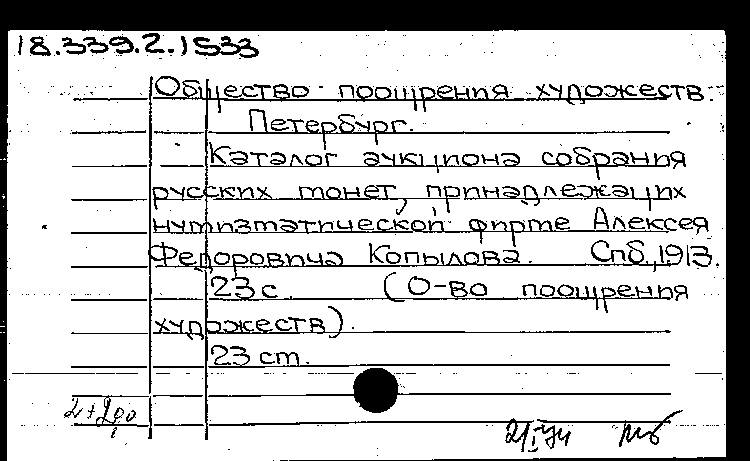 18.339.2.1533
Общество поощрения художеств.
Петербург.
Каталог аукциона собрания
русских монет, принадлежащих
нумизматической фирме Алексея
Федоровича Копылова. Спб., 1913.
23 с. (О-во поощрения
художеств).
23 см.